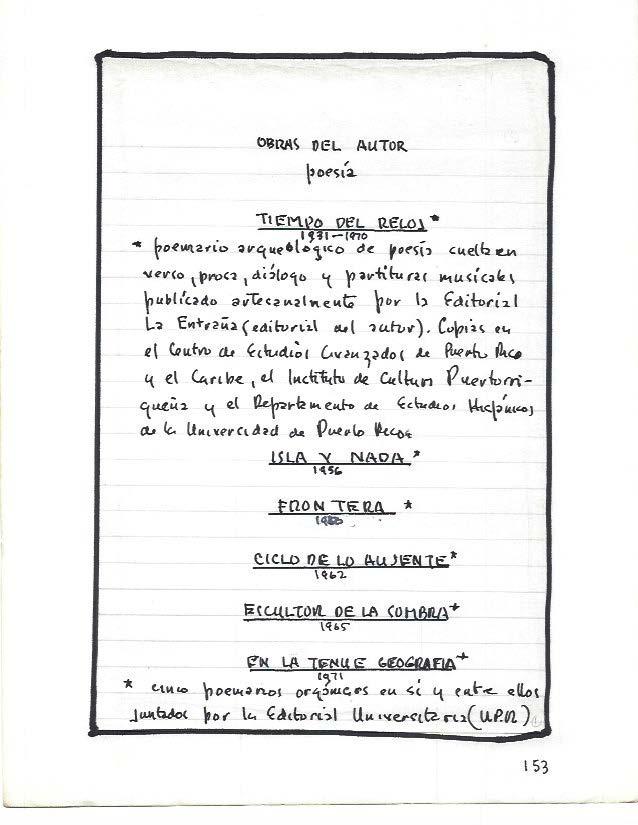 OBRAS DEL AUTOR
poesía
TIEMPO DEL RELOJ *
1931-1970
* poemario arqueológico de poesía suelta en
verso, prosa, diálogo y partituras musicales
publicado artesanalmente por la Editorial
La Entraña (editorial del autor). Copias en
el Centro de Estudios Avanzados de Puerto Rico
y el Caribe, el Instituto de Cultura Puertorri-
queña y el Departamento de Estudios Hispánicos
de la Universidad de Puerto Rico.
ISLA Y NADA *
1956
FRONTERA *
CICLO DE LO AUSENTE *
1962
ESCULTOR DE LA SOMBRA *
1965
EN LA TENUE GEOGRAFIA *
1971
* cinco poemarios orgánicos en sí y entre ellos
juntados por la Editorial Universitaria (U.P.R)
153